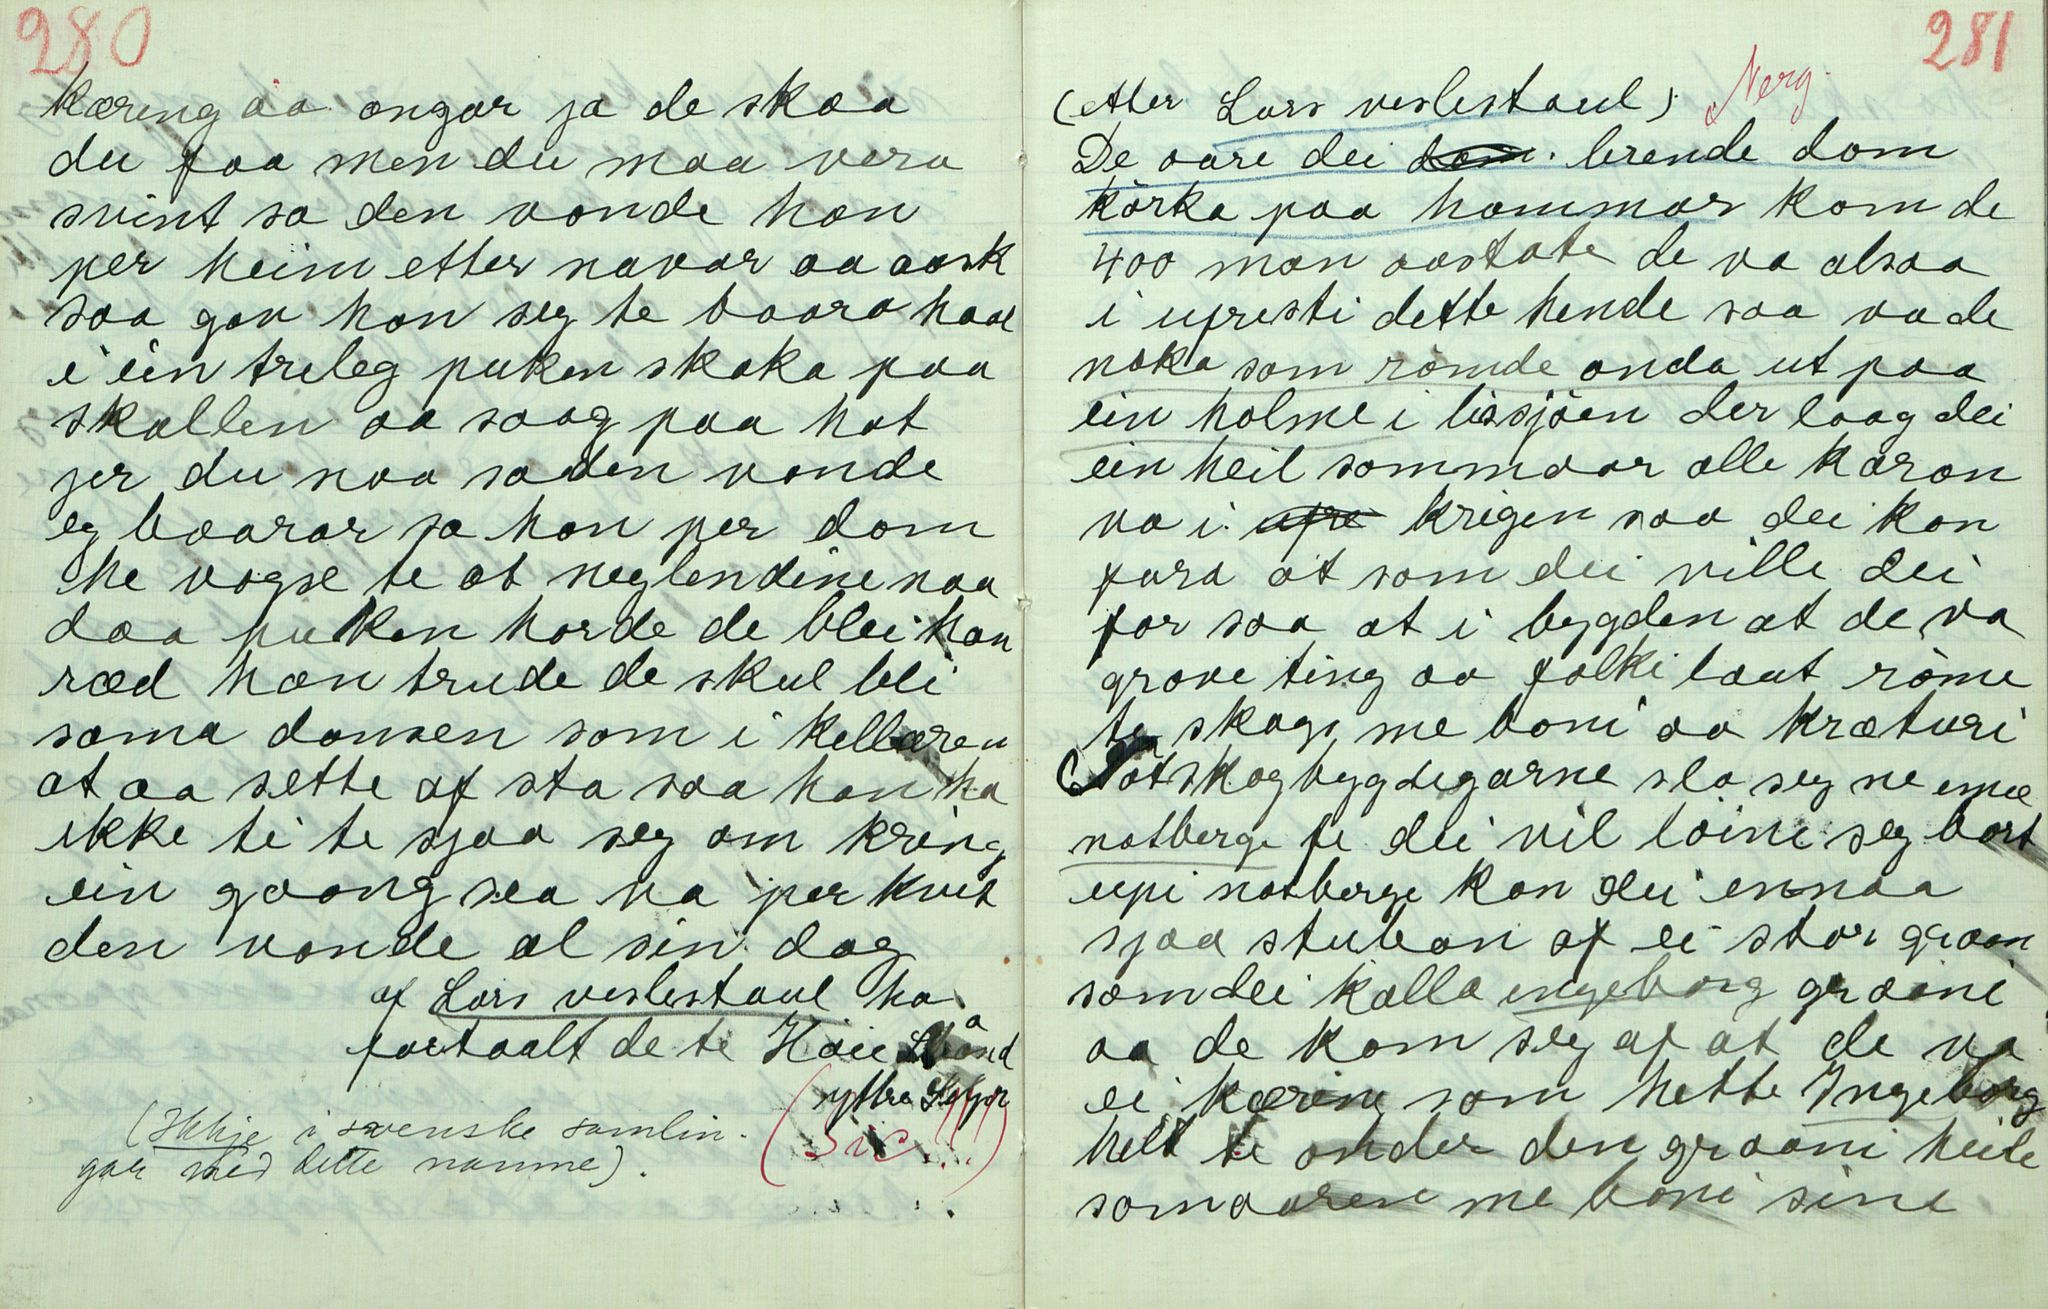 280
kæring aa ongar ja de skaa
du faa men du maa vera
svint sa den vonde han
per heim etter navar aa aask
saa gav han seg te baara haal
i ein treleg puken skaka paa
skallen aa saag paa hat
jer du naa sa den vonde
eg baarar sa han per dom
he vogse te at neglendine naa
daa puken horde de blei han
ræd han trude de skul bli
sama dansen som i kelleren
at aa sette af sta saa han ha
ikke ti te sjaa seg om kring
ein gaang sea va per kvit
den vonde al sin dag
af Lars veslestaul ha
fortaalt de te
yttre
(sic!!!)
(Ikkje i svenske samlin-
gar med dette namne).
281
(etter Lars veslestaul) Nerg.
De vare dei dom brende dom
körka paa hammar kom de
400 man aastate de va alsaa
i ufresti dette hende saa va de
noka som römde onda ut paa
ein holme i lissjöen der laag dei
ein heil sommaar alle karan
va i ufre krigen saa dei kan
fara at som dei ville dei
for saa at i bygden at de va
grove ting aa folki laut röme
te skogs me boni aa kræturi
nötskogbygdegarne sla seg ne
notberge te dei vil löine seg bort
upi notberge kan dei ennaa
sjaa stuban af ei stor graan
som dei kalla ingeborg graani
aa de kom seg af at de va
ei kæring som hette Ingeborg
helt te onder den graani heile
somaaren me boni sine